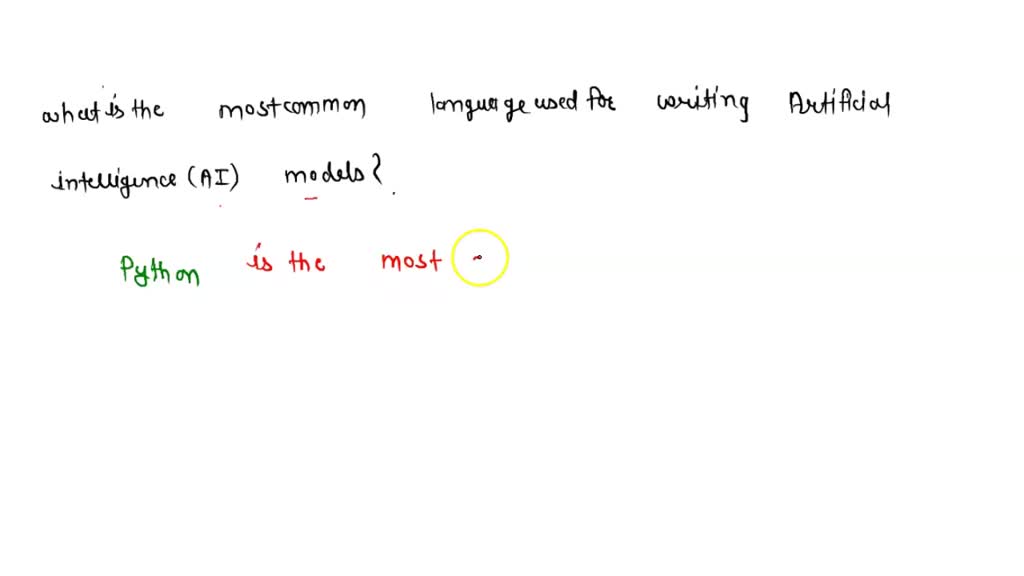 what is the most common language used for writing Artificial
intelligence (AI) models?
Python is the most